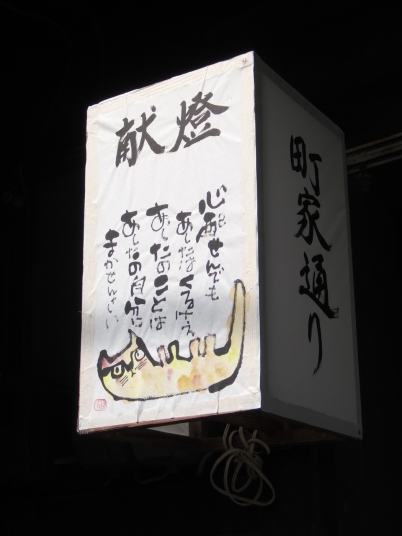 献燈
心配せんでも
あしたはくるけえ
あしたのことは
あしたの自分に
まかせんさい
町家通り